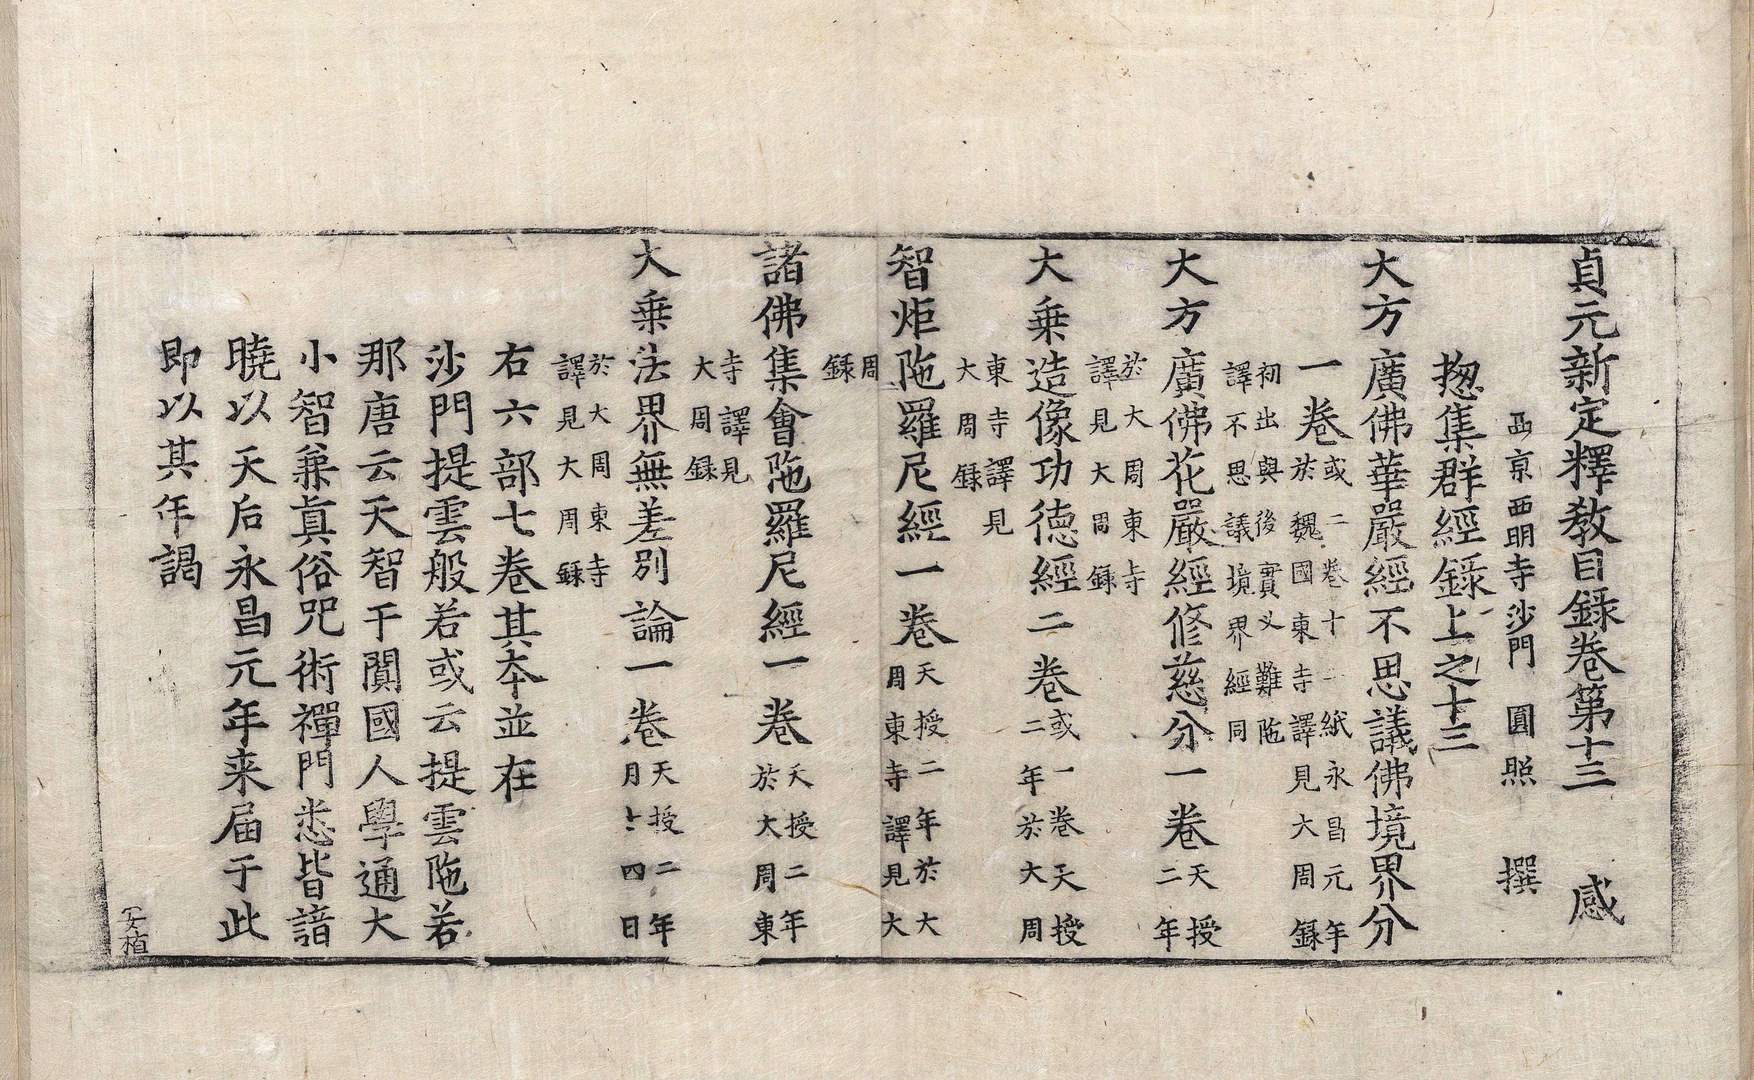 貞元新定釋敎目錄卷第十三 感
西京西明寺沙門 圓照 撰
揔集群經錄上之十三
大方廣佛華嚴經不思議佛境界分
一卷或二卷十一紙永昌元年
於魏國東寺譯見大周錄
初出與後實叉難陁
譯不思議境界經同
大方廣佛花嚴經修慈分一卷天授
二年
於大周東寺
譯見大周錄
大乗造像功德經二卷或一卷天授
二年於大周
東寺譯見
大周錄
智炬陁羅尼經一卷天授二年於大
周東寺譯見大
周
錄
諸佛集會陁羅尼經一卷天授二年
於大周東
寺譯見
大周錄
大乗法界無差別論一卷天授二年
月十四日
於大周東寺
譯見大周錄
右六部七卷其夲並在
沙門提雲般若或云提雲陁若
那唐云天智于闐國人學通大
小智兼眞俗咒術禪門悉皆諳
曉以天后永昌元年来届于此
即以其年謁
安植